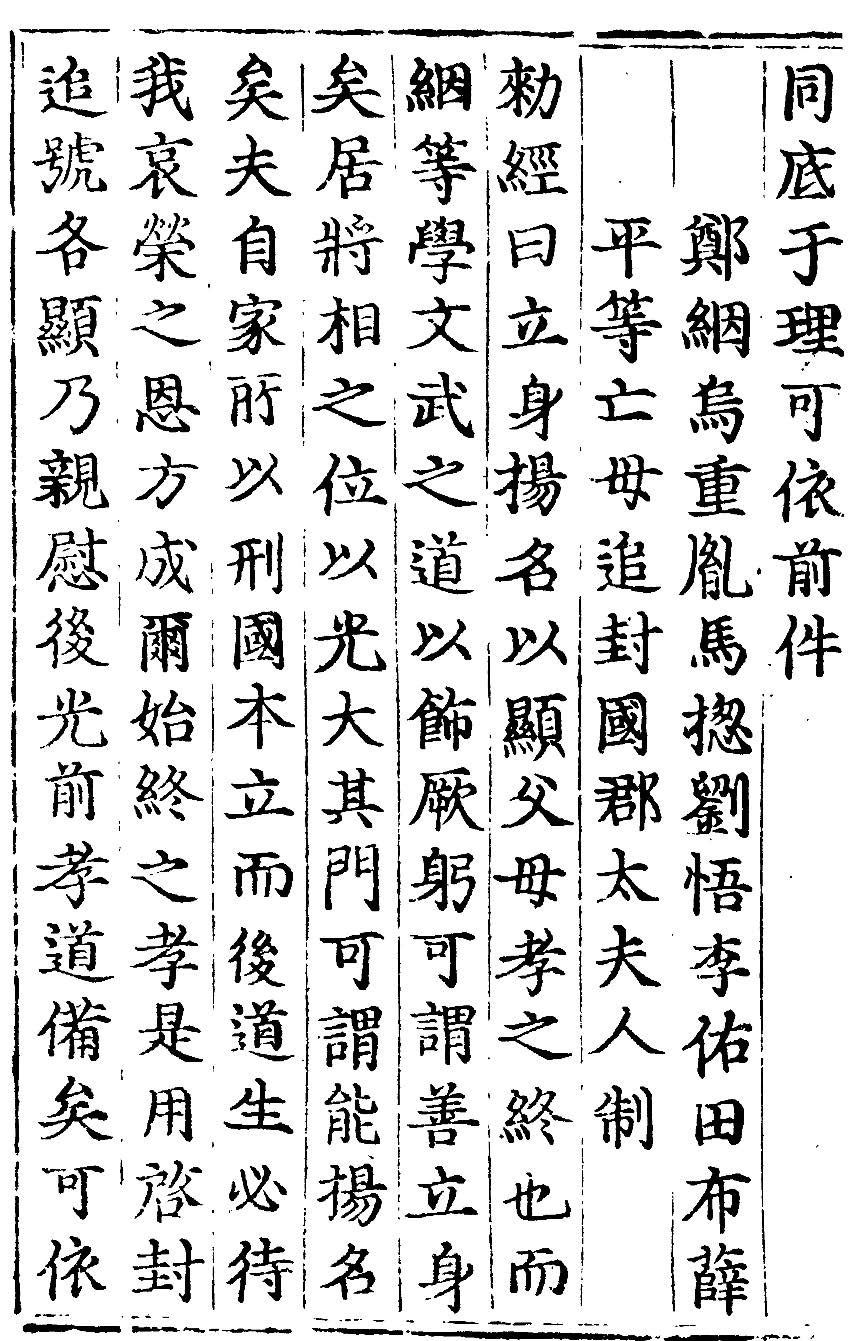 同底于理可依前件
鄭絪烏重胤馬揔劉悟李佑田布薛
平等亡母追封國郡太夫人制
勑經曰立身揚名以顯父母孝之終也而
絪等學文武之道以飾厥躬可謂善立身
矣居將相之位以光大其門可謂能揚名
矣夫自家所以刑國本立而後道生必待
我哀榮之恩方成爾始終之孝是用啓封
追號各顯乃親慰後光前孝道備矣可依